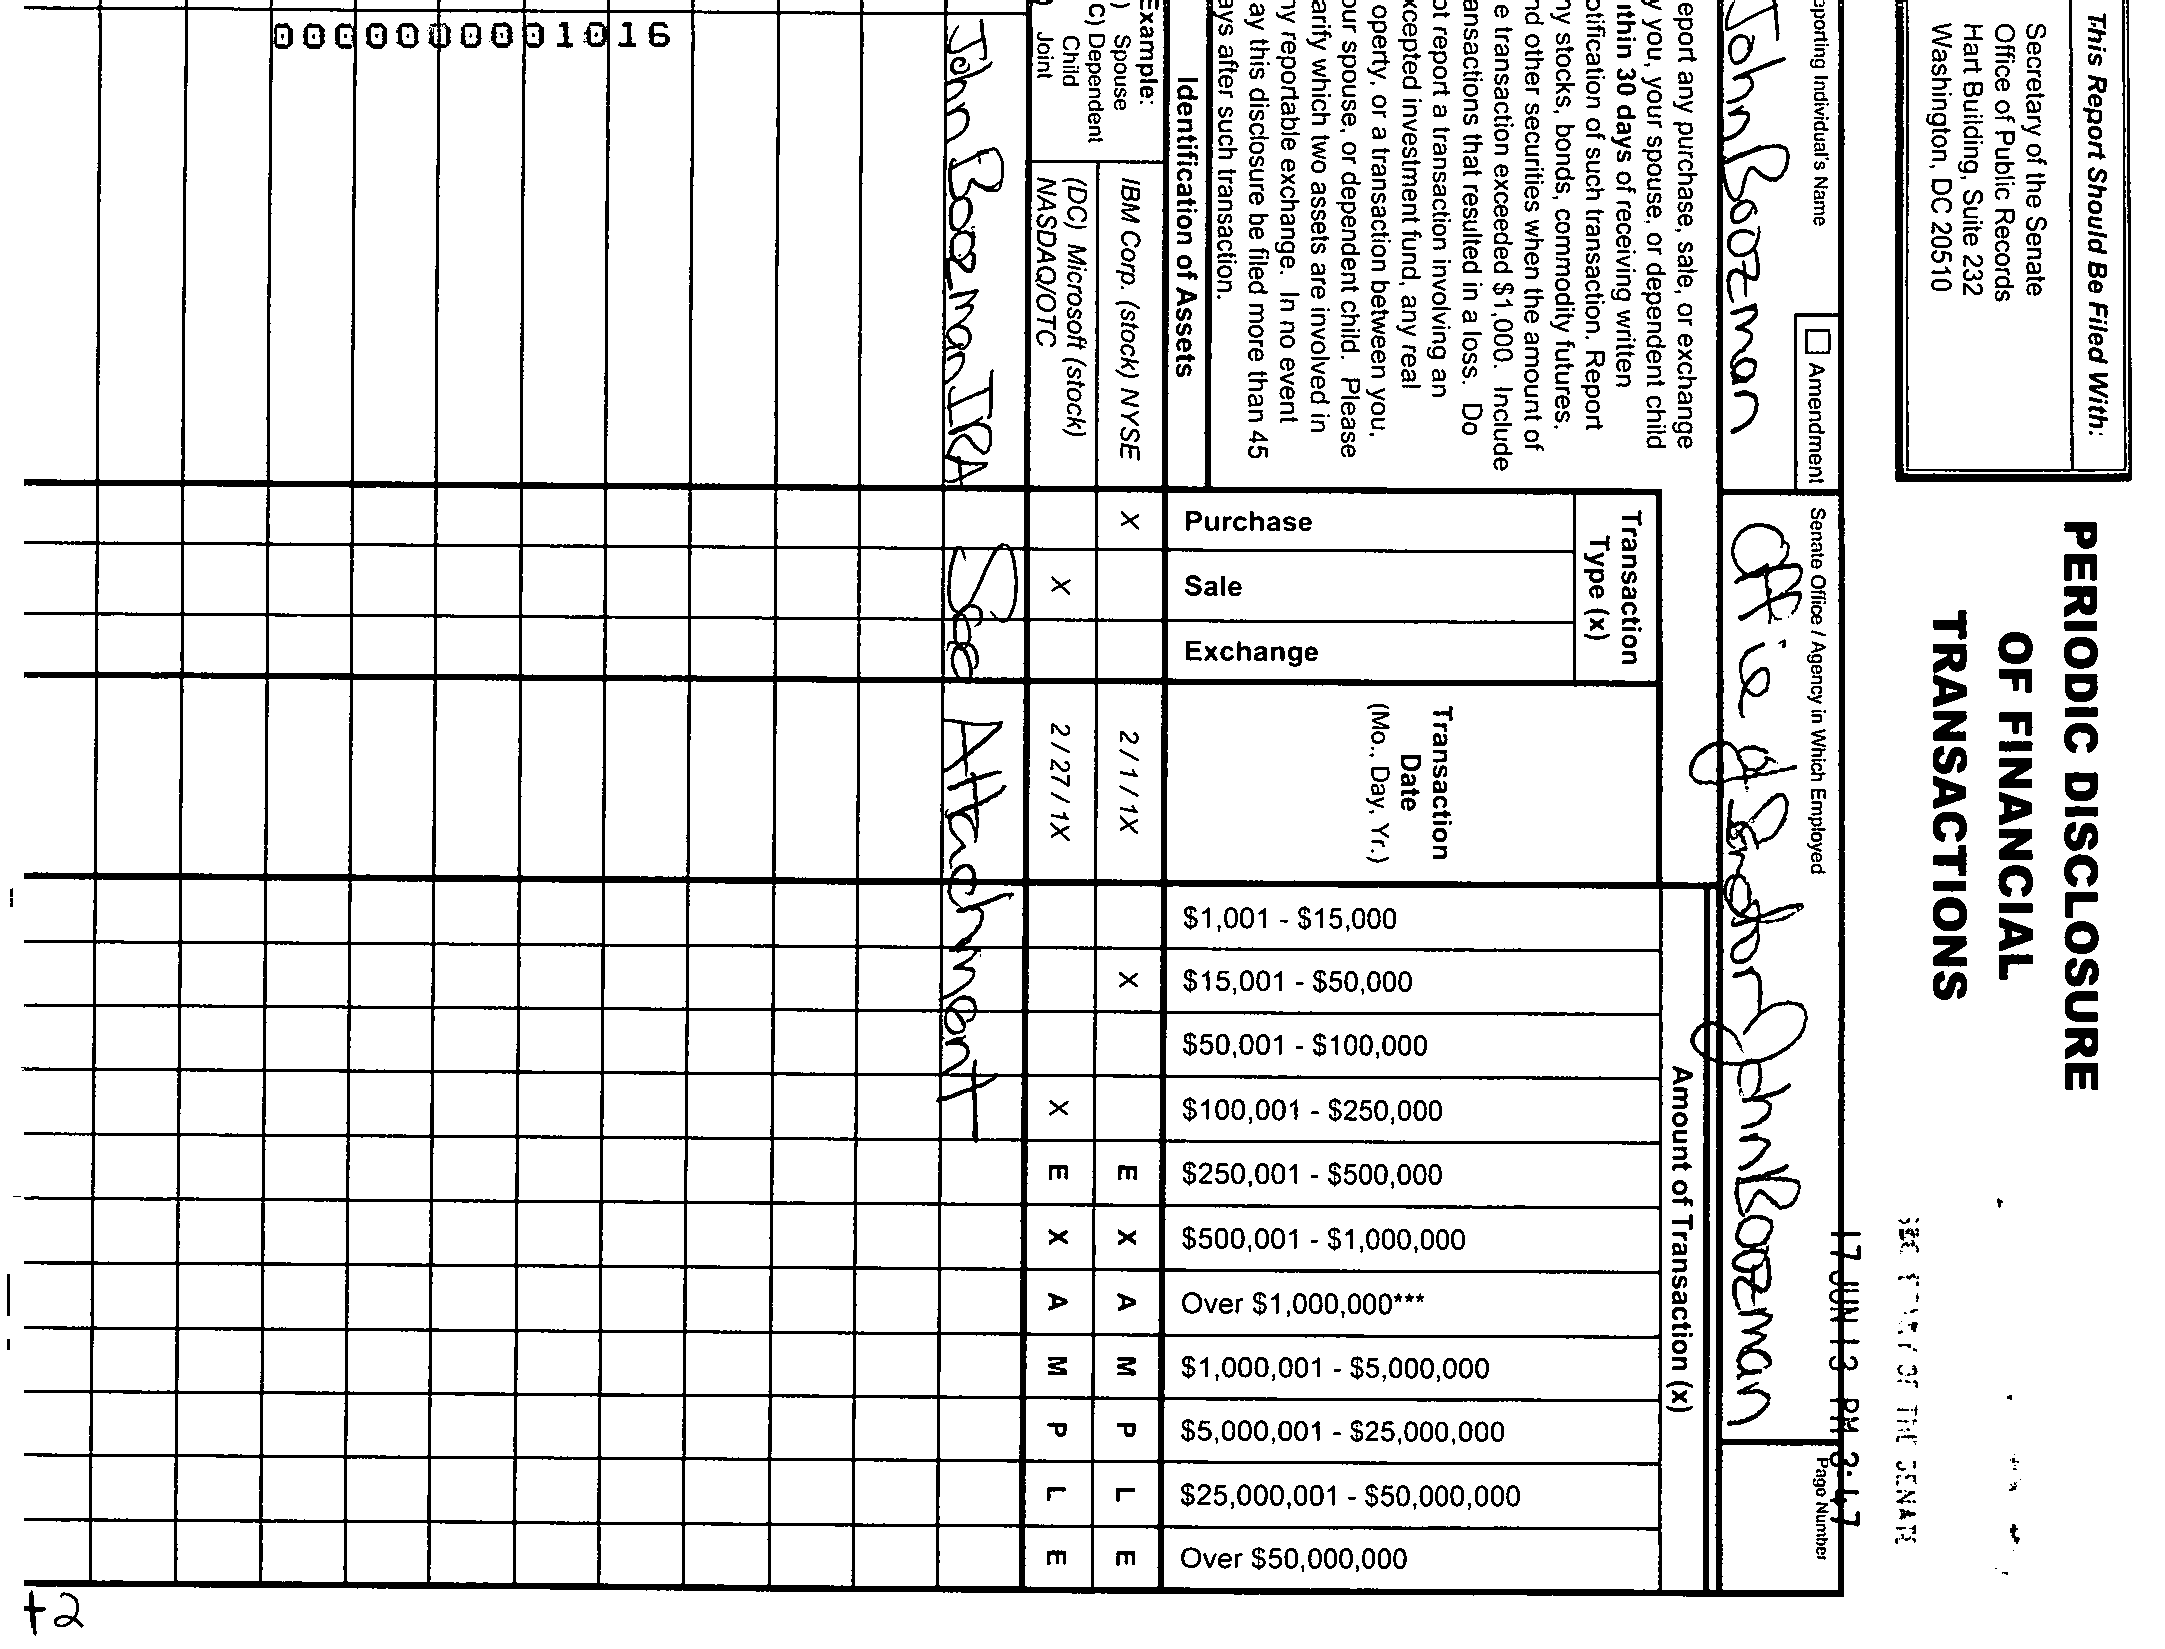 This Report Should Be Filed With:
Secretary of the Senate
Office of Public Records
Hart Building, Suite 232
Washington, DC 20510
PERIODIC DISCLOSURE
OF FINANCIAL
TRANSACTIONS
17 JUN 13 PM 3:47
porting Individual's Name
Amendment
Senate Office / Agency in Which Employed
Page Number
John Boozman
Office of Senator John Boozman
eport any purchase, sale, or exchange
y you, your spouse, or dependent child
ithin 30 days of receiving written
otification of such transaction. Report
ny stocks, bonds, commodity futures,
nd other securities when the amount of
e transaction exceeded $1,000. Include
ansactions that resulted in a loss. Do
ot report a transaction involving an
xcepted investment fund, any real
operty, or a transaction between you,
our spouse, or dependent child. Please
arify which two assets are involved in
ny reportable exchange. In no event
ay this disclosure be filed more than 45
ays after such transaction.
Identification of Assets
Transaction
Type (x)
Purchase
Sale
Exchange
Transaction
Date
(Mo., Day, Yr.)
Amount of Transaction (x)
$1,001 - $15,000
$15,001 - $50,000
$50,001 - $100,000
$100,001 - $250,000
$250,001 - $500,000
$500,001 - $1,000,000
Over $1,000,000***
$1,000,001 - $5,000,000
$5,000,001 - $25,000,000
$25,000,001 - $50,000,000
Over $50,000,000
Example:
) Spouse
C) Dependent
Child
Joint
IBM Corp. (stock) NYSE X 2 / 1 / 1X X E X A M P L E
(DC) Microsoft (stock)
NASDAQ/OTC X 2 / 27 / 1X X E X A M P L E
John Boozman IRA See Attachment
000000001016
+2